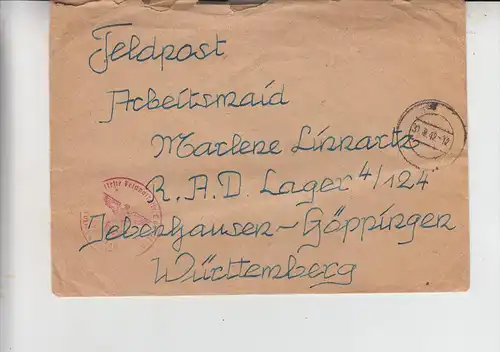 Feldpost
Arbeitsmaid
Marlene Linnartz
R.A.D. Lager 4/124
Jebenhausen-Göppingen
Württemberg